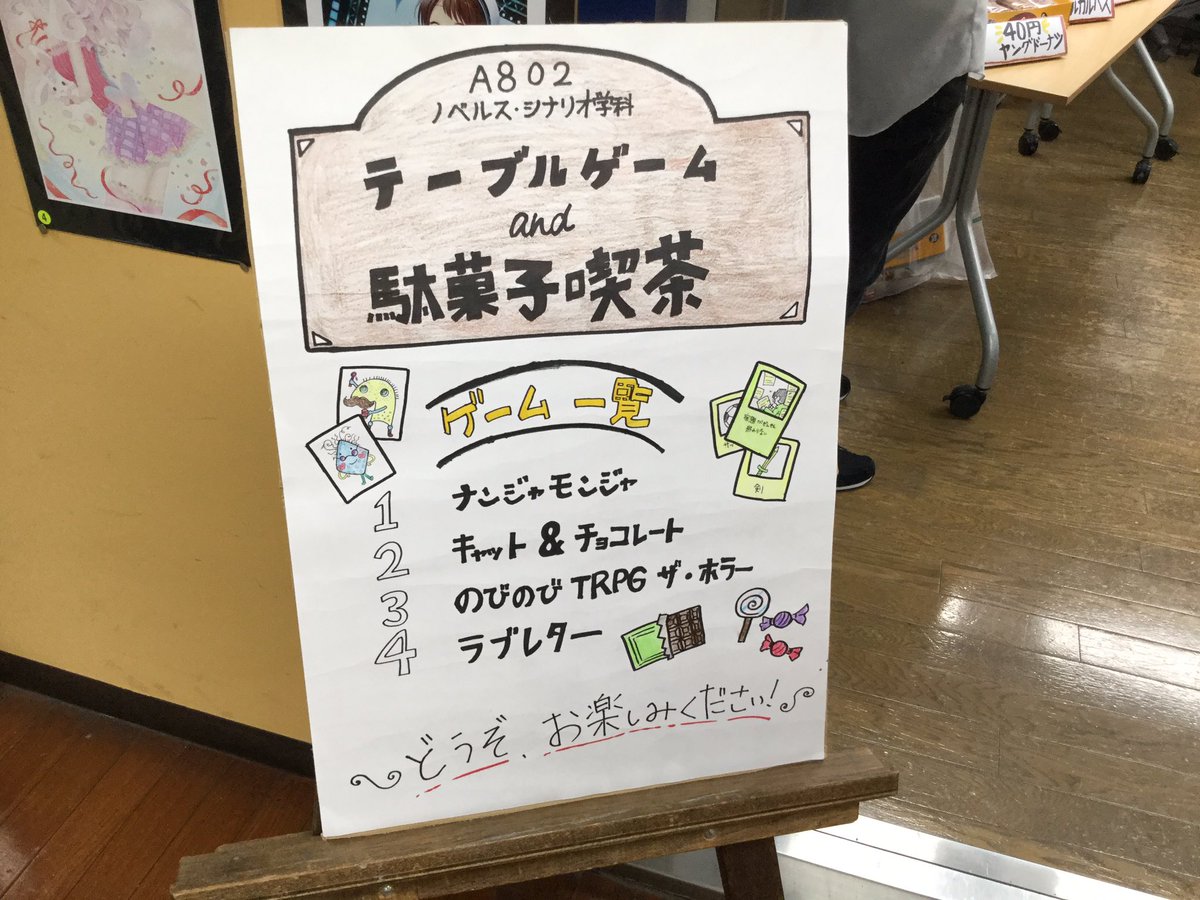 A802
ノベルス・シナリオ学科
テーブルゲーム
and
駄菓子喫茶
ゲーム一覧
1 ナンジャモンジャ
2 キャット&チョコレート
3 のびのびTRPG ザ・ホラー
4 ラブレター
剣
どうぞ、お楽しみください!
40円
ヤングドーナツ
4